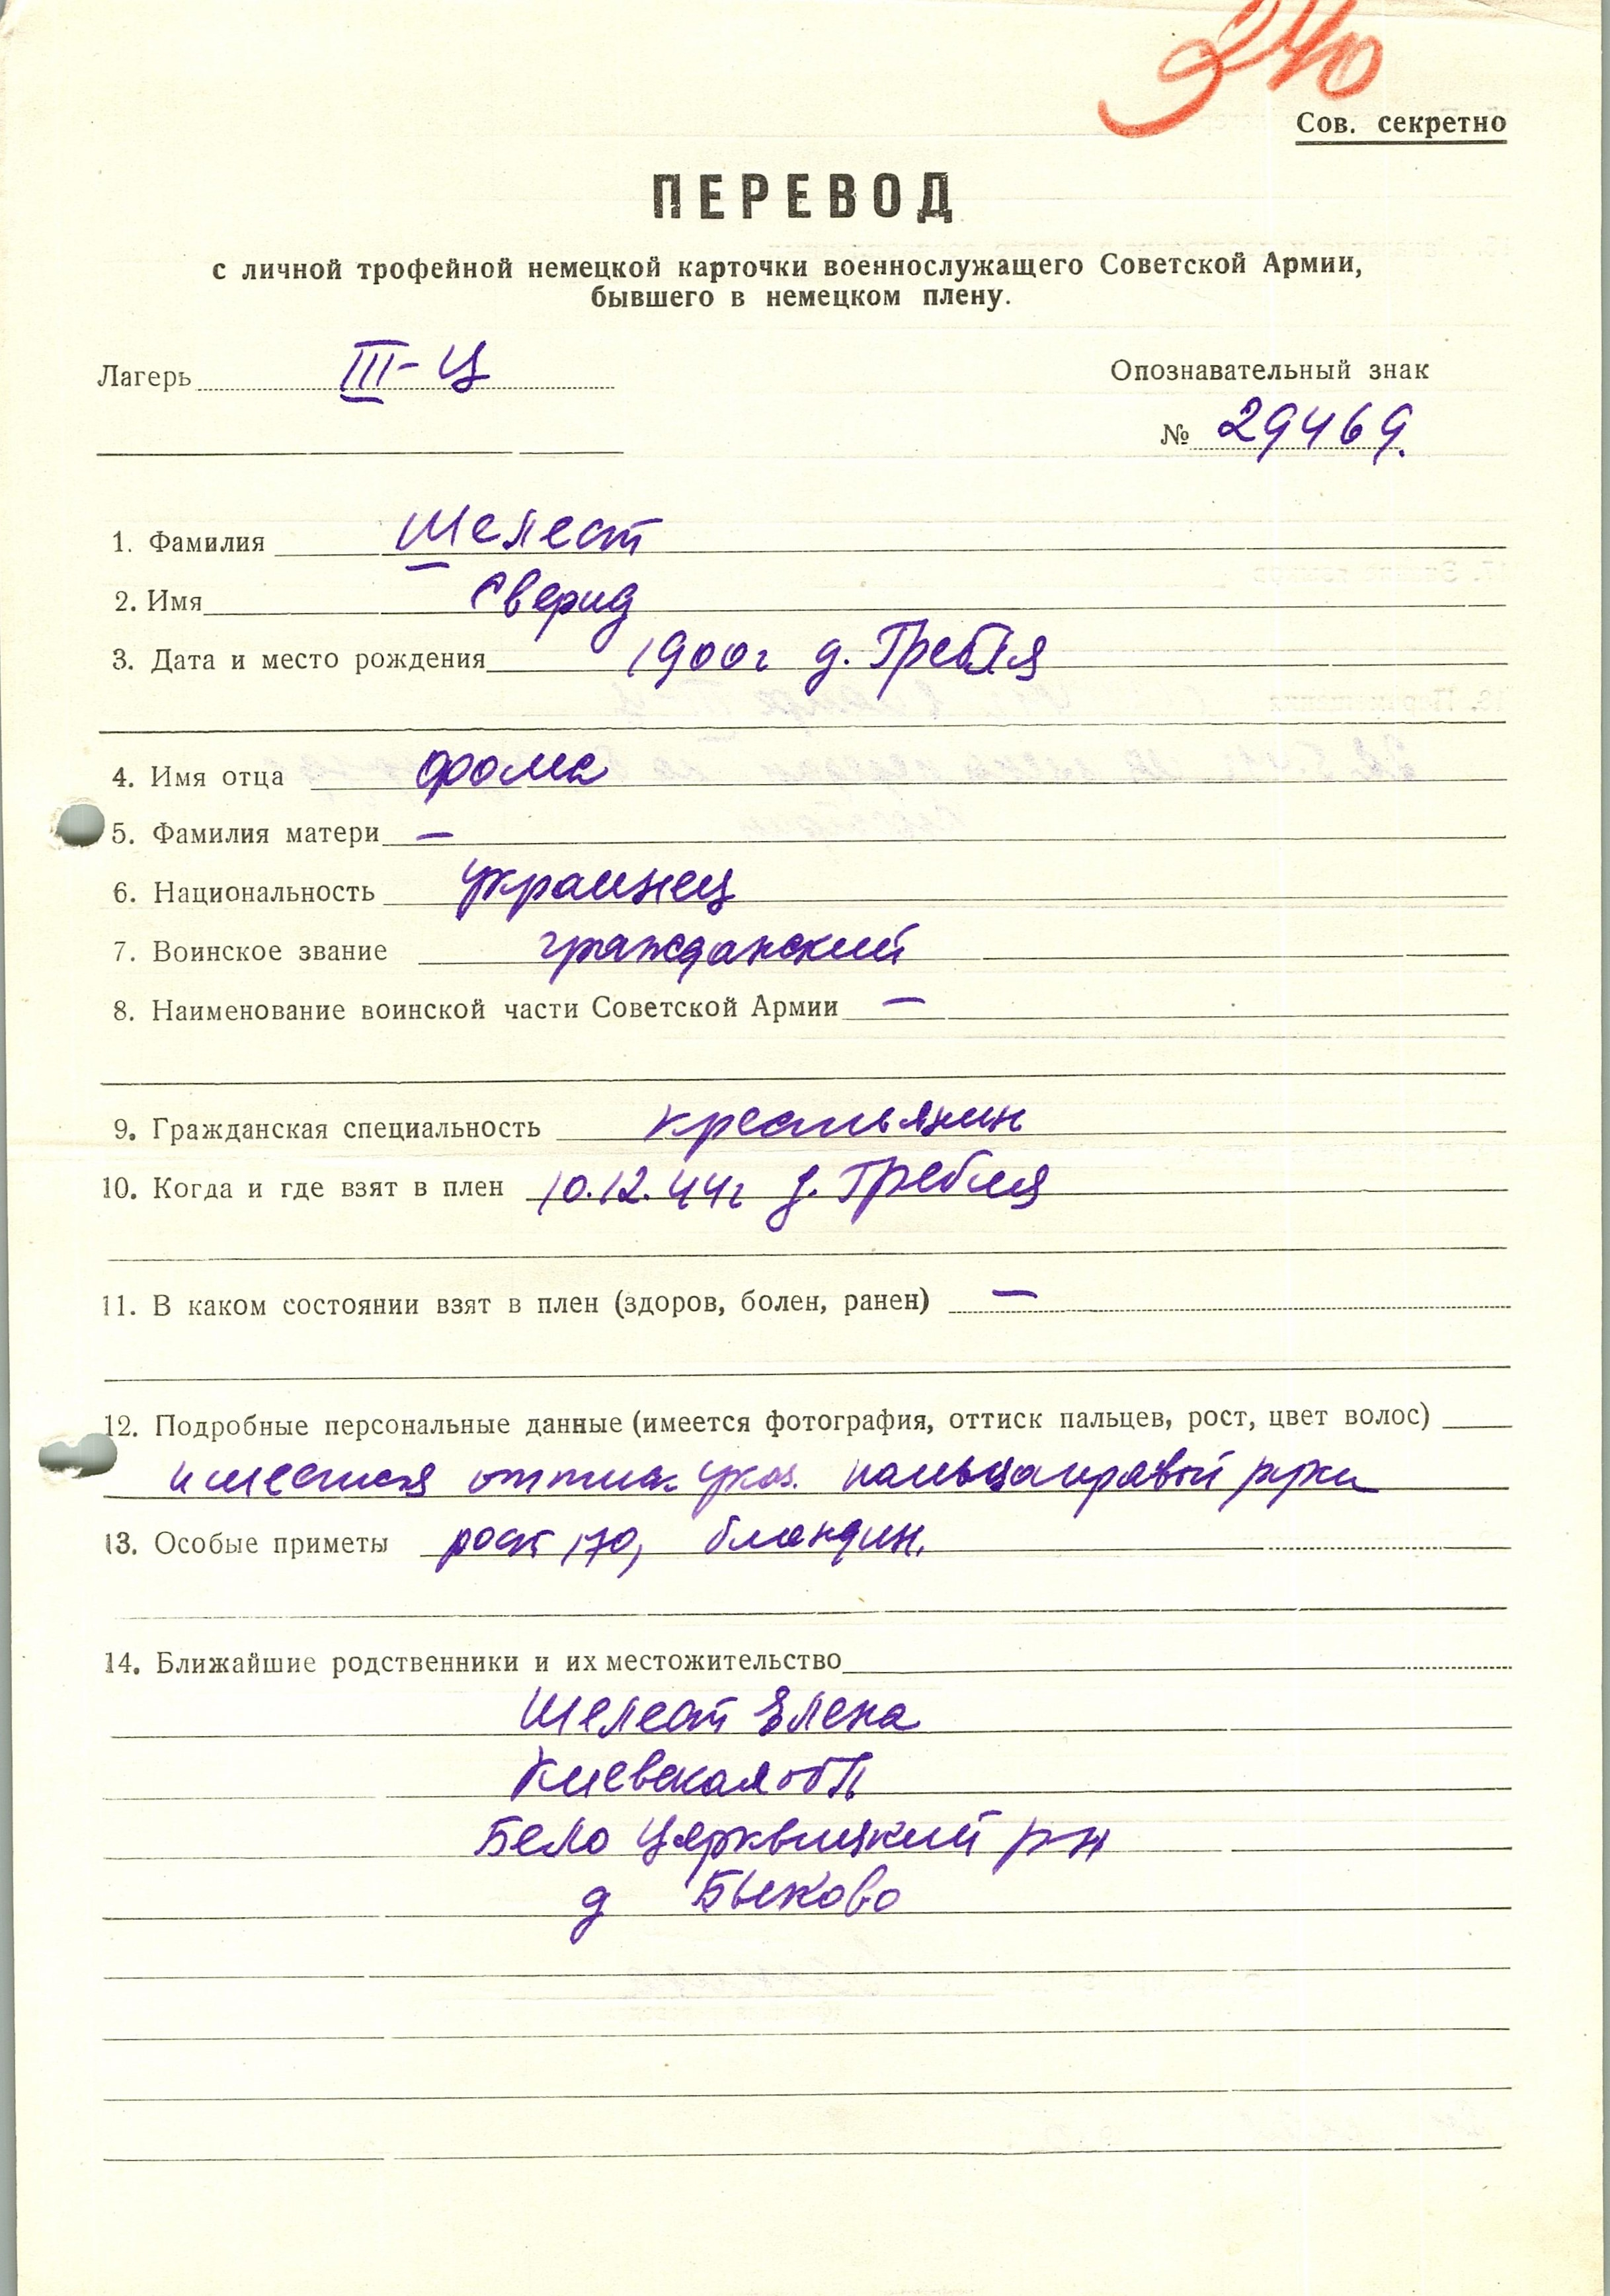 240
Сов. секретно
ПЕРЕВОД
с личной трофейной немецкой карточки военнослужащего Советской Армии,
бывшего в немецком плену.
Лагерь III-Ц
Опознавательный знак
№ 29469.
1. Фамилия Шелест
2. Имя Сверид
3. Дата и место рождения 1900г д. Гребля
4. Имя отца Фома
5. Фамилия матери —
6. Национальность украинец
7. Воинское звание гражданский
8. Наименование воинской части Советской Армии —
9. Гражданская специальность крестьянин
10. Когда и где взят в плен 10.12.44г д. Гребля
11. В каком состоянии взят в плен (здоров, болен, ранен) —
12. Подробные персональные данные (имеется фотография, оттиск пальцев, рост, цвет волос)
имеется оттиск указ. пальца правой руки
13. Особые приметы рост 170, блондин.
14. Ближайшие родственники и их местожительство
Шелест Елена
Киевская обл
Бело Церквицкий р-н
д Быково